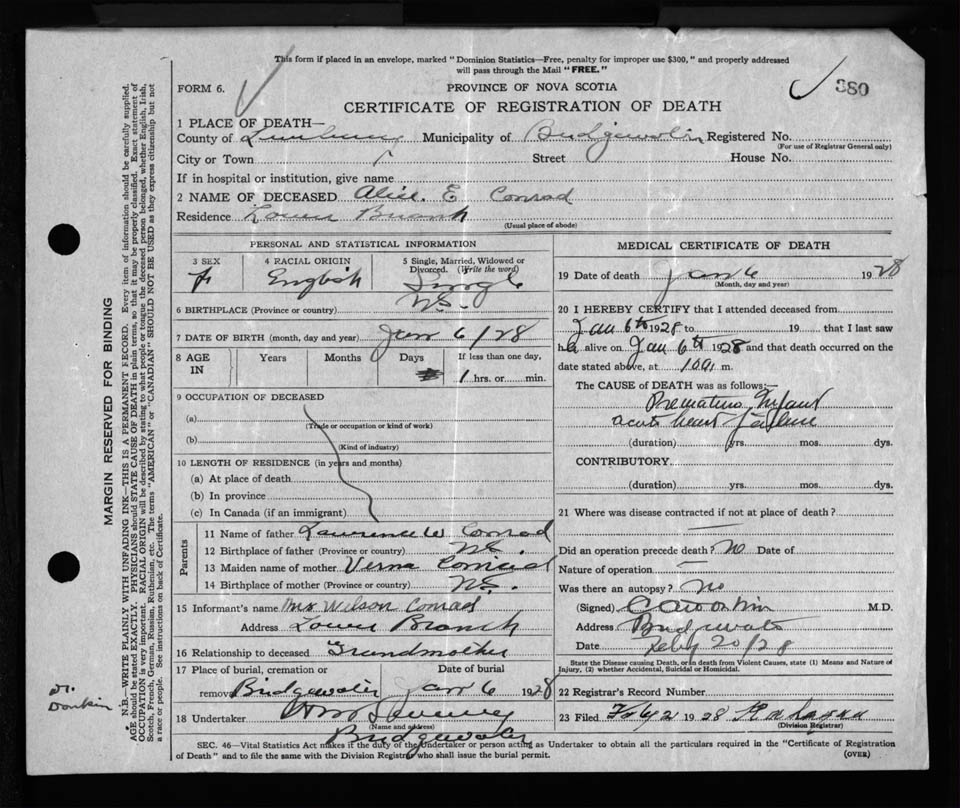 This form if placed in an envelope, marked "Dominion Statistics—Free, penalty for improper use $300," and properly addressed
will pass through the Mail "FREE."
FORM 6.
PROVINCE OF NOVA SCOTIA
380
CERTIFICATE OF REGISTRATION OF DEATH
1 PLACE OF DEATH—
County of Lunenburg Municipality of Bridgewater Registered No.
(For use of Registrar General only)
City or Town Street House No.
If in hospital or institution, give name
2 NAME OF DECEASED Alice. E Conrad
Residence Lower Branch
(Usual place of abode)
PERSONAL AND STATISTICAL INFORMATION
3 SEX F
4 RACIAL ORIGIN English
5 Single, Married, Widowed or Divorced. (Write the word) Single
6 BIRTHPLACE (Province or country) N.S.
7 DATE OF BIRTH (month, day and year) Jan 6/28
8 AGE IN Years Months Days If less than one day,
1 hrs. or min.
9 OCCUPATION OF DECEASED
(a)
(Trade or occupation or kind of work)
(b)
(Kind of industry)
10 LENGTH OF RESIDENCE (in years and months)
(a) At place of death
(b) In province
(c) In Canada (if an immigrant)
Parents
11 Name of father Lawrence W Conrad
12 Birthplace of father (Province or country) N.S.
13 Maiden name of mother Verna Conrad
14 Birthplace of mother (Province or country) N.S.
15 Informant's name Mrs Wilson Conrad
Address Lower Branch
16 Relationship to deceased Grandmother
17 Place of burial, cremation or Date of burial
removal Bridgewater Jan 6 1928
18 Undertaker
(Name and address)
Bridgewater
MEDICAL CERTIFICATE OF DEATH
19 Date of death Jan 6 1928
(Month, day and year)
20 I HEREBY CERTIFY that I attended deceased from
Jan 6th 1928 to 19 that I last saw
h alive on Jan 6th 1928 and that death occurred on
date stated above, at m.
The CAUSE of DEATH was as follows:—
Premature Infant
acute heart failure
(duration) yrs. mos. dys.
CONTRIBUTORY
(duration) yrs. mos. dys.
21 Where was disease contracted if not at place of death?
Did an operation precede death? No Date of
Nature of operation
Was there an autopsy? No
(Signed) M.D.
Address Bridgewater
Date Feby 20/28
State the Disease causing Death, or in death from Violent Causes, state (1) Means and Nature of
Injury, (2) whether Accidental, Suicidal or Homicidal.
22 Registrar's Record Number
23 Filed 1928
(Division Registrar)
SEC. 46—Vital Statistics Act makes it the duty of the Undertaker or person acting as Undertaker to obtain all the particulars required in the "Certificate of Registration
of Death" and to file the same with the Division Registrar who shall issue the burial permit. (OVER)
MARGIN RESERVED FOR BINDING
N.B.—WRITE PLAINLY WITH UNFADING INK—THIS IS A PERMANENT RECORD. Every item of information should be carefully supplied.
AGE should be stated EXACTLY. PHYSICIANS should STATE CAUSE OF DEATH in plain terms, so that it may be properly classified. Exact statement of
OCCUPATION is very important. RACIAL ORIGIN will be described by stating to what people or tongue the deceased person belonged, whether English, Irish,
Scotch, French, German, Russian, Ruthenian, etc. The terms "AMERICAN" or "CANADIAN" SHOULD NOT BE USED as they express citizenship but not
a race or people. See instructions on back of Certificate.
Dr.
Donkin